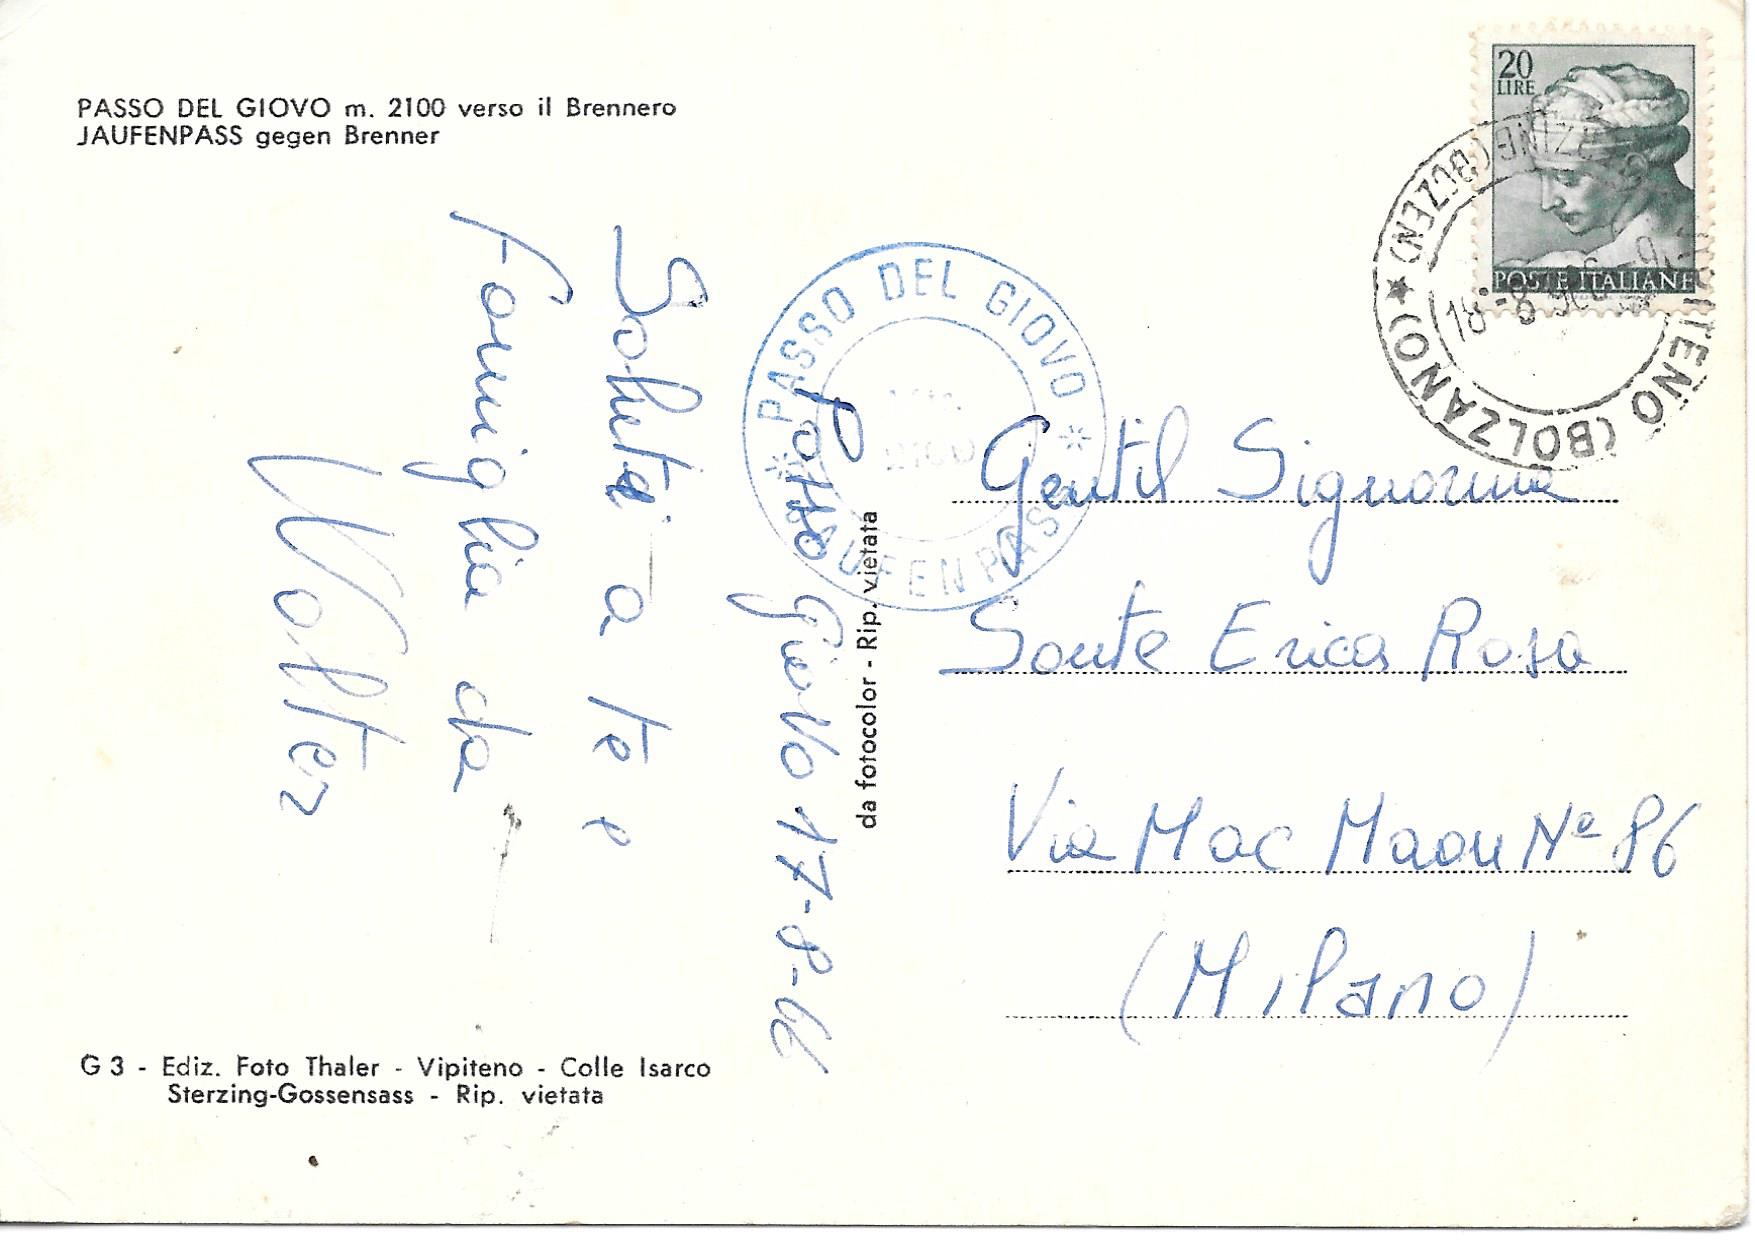 PASSO DEL GIOVO m. 2100 verso il Brennero
JAUFENPASS gegen Brenner
Passo Giovo 17-8-66
Saluti a te e
famiglia da
Walter
G 3 - Ediz. Foto Thaler - Vipiteno - Colle Isarco
Sterzing-Gossensass - Rip. vietata
da fotocolor - Rip. vietata
PASSO DEL GIOVO
JAUFENPASS
20
LIRE
POSTE ITALIANE
VIPITENO (BOLZANO) ★ (BOZEN)
18-8
Gentil Signorina
Sante Erica Rosa
Via Mac Maon Nº 86
(Milano)